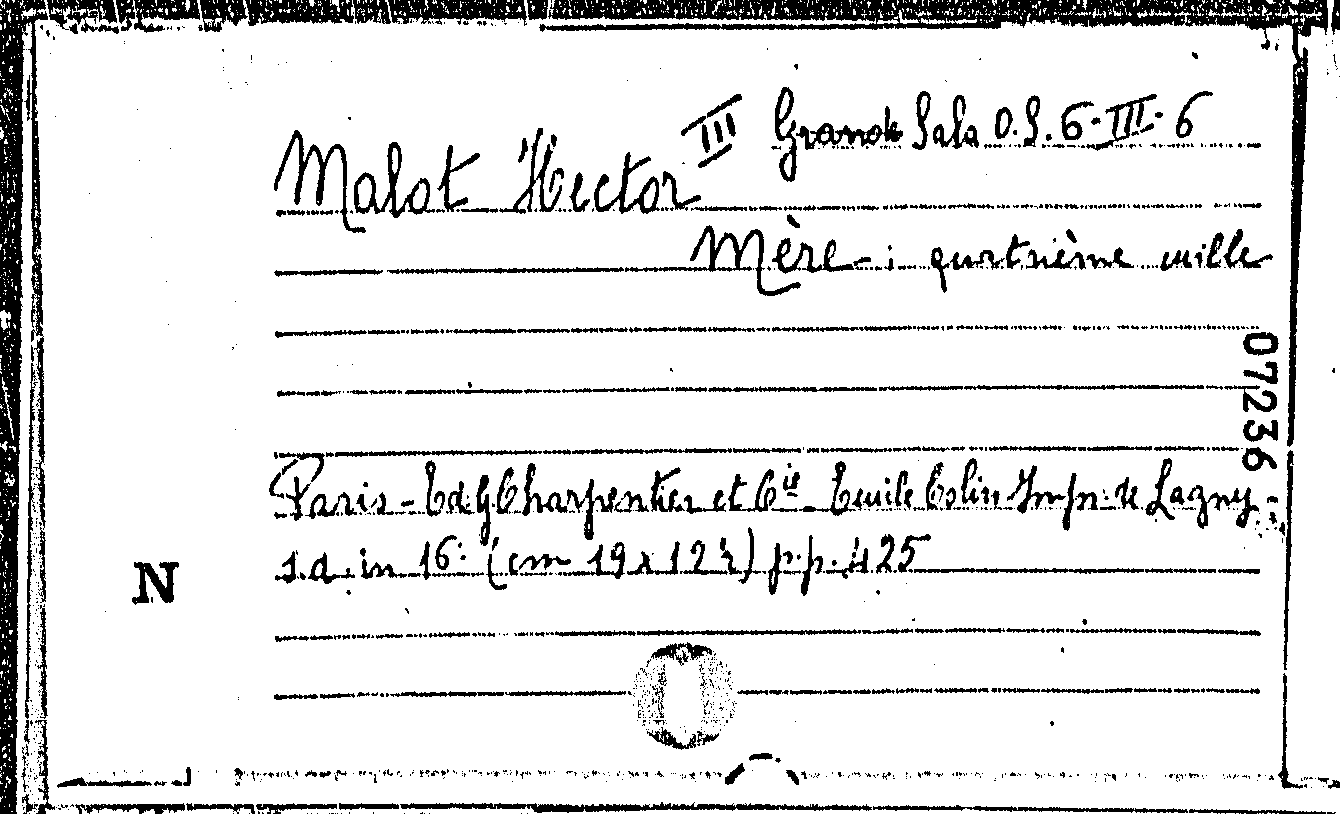 III Grande Sala O.S. 6-III-6
Malot Hector
Mère : quatrième mille
07236
Paris - Ed. G Charpentier et Cie - Emile Colin Imp. de Lagny -
s.a. in 16° (cm 19 x 12½) p.p. 425
N